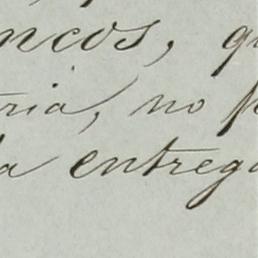 ncos, q
ria, no p
la entrega